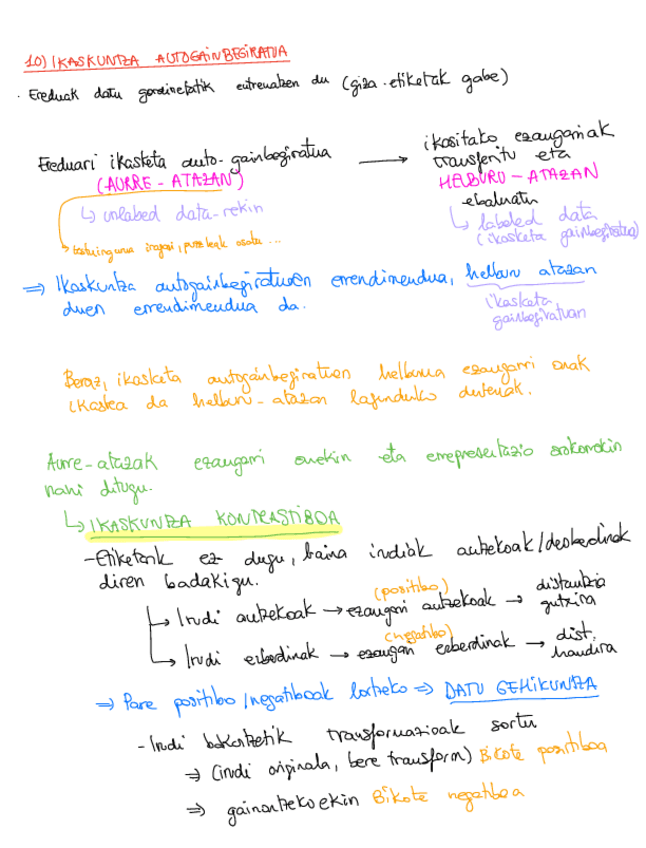 10) IKASKUNTZA AUTOGAINBEGIRATUA
· Ereduak datu gordinetatik entrenatzen du (giza-etiketak gabe)
Ereduari ikasketa auto-gainbegiratua → ikasitako ezaugarriak
(AURRE-ATAZAN) transferitu eta
HELBURU-ATAZAN
ebaluatu
↳ unlabed data-rekin
↳ labeled data
(ikasketa gainbegiratua)
→ testuingurua iragarri, puzzleak osatu ...
⇒ Ikaskuntza autogainbegiratuaren errendimendua, helburu atazan
duen errendimendua da.
ikasketa
gainbegiratuan
Beraz, ikasketa autogainbegiratuen helburua ezaugarri onak
ikastea da helburu-atazan lagunduko dutenak.
Aurre-atazak ezaugarri onekin eta errepresentazio orokorrekin
nahi ditugu.
↳ IKASKUNTZA KONTRASTIBOA
-Etiketarik ez dugu, baina irudiak antzekoak/desberdinak
diren badakigu.
(positibo)
↳ Irudi antzekoak → ezaugarri antzekoak → distantzia
gutxira
(negatibo)
↳ Irudi ezberdinak → ezaugarri ezberdinak → dist.
handira
⇒ Pare positibo/negatiboak lortzeko ⇒ DATU GEHIKUNTZA
- Irudi bakoitzetik transformazioak sortu
⇒ (irudi originala, bere transform) Bikote positiboa
⇒ gainontzekoekin Bikote negatiboa